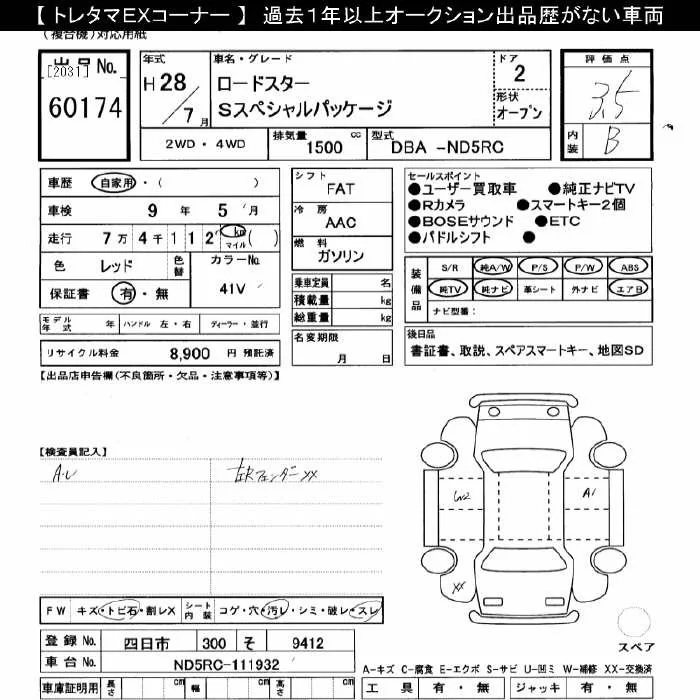 【 トレタマEXコーナー 】 過去1年以上オークション出品歴がない車両
(複合機)対応用紙
出品No.
[2031]
60174
年式
H28/7月
車名・グレード
ロードスター
Sスペシャルパッケージ
ドア
2
形状
オープン
2WD・4WD
排気量
1500 cc
型式
DBA -ND5RC
評価点
3.5
内装
B
車歴 自家用・( )
車検 9年 5月
走行 7万4千112 km マイル( )
色 レッド 色替 カラーNo.
保証書 有・無 41V
モデル年式 年 ハンドル 左・右 ディーラー・並行
リサイクル料金 8,900 円 預託済
シフト FAT
冷房 AAC
燃料 ガソリン
乗車定員 名
積載量 kg
総重量 kg
名変期限
月 日
セールスポイント
●ユーザー買取車 ●純正ナビTV
●Rカメラ ●スマートキー2個
●BOSEサウンド ●ETC
●パドルシフト ●
装備品
S/R 純A/W P/S P/W ABS
純TV 純ナビ 革シート 外ナビ エアB
ナビ型番:
後日品
書証書、取説、スペアスマートキー、地図SD
【出品店申告欄(不良箇所・欠品・注意事項等)】
【検査員記入】
A・U 左Rフェンダー XX
W2 A1
XX
FW キズ・トビ石・割レX シート内装 コゲ・穴・汚レ・シミ・破レ・スレ
登録No. 四日市 300 そ 9412
車台No. ND5RC-111932
スペア
A-キズ C-腐食 E-エクボ S-サビ U-凹ミ W-補修 XX-交換済
車庫証明用 長さ cm 幅 cm 高さ cm 工具 有・無 ジャッキ 有・無